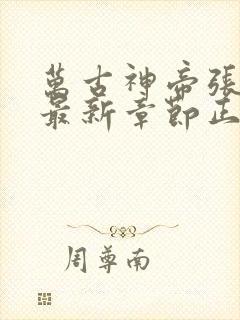 萬古神帝張
最新章節正
周尊南